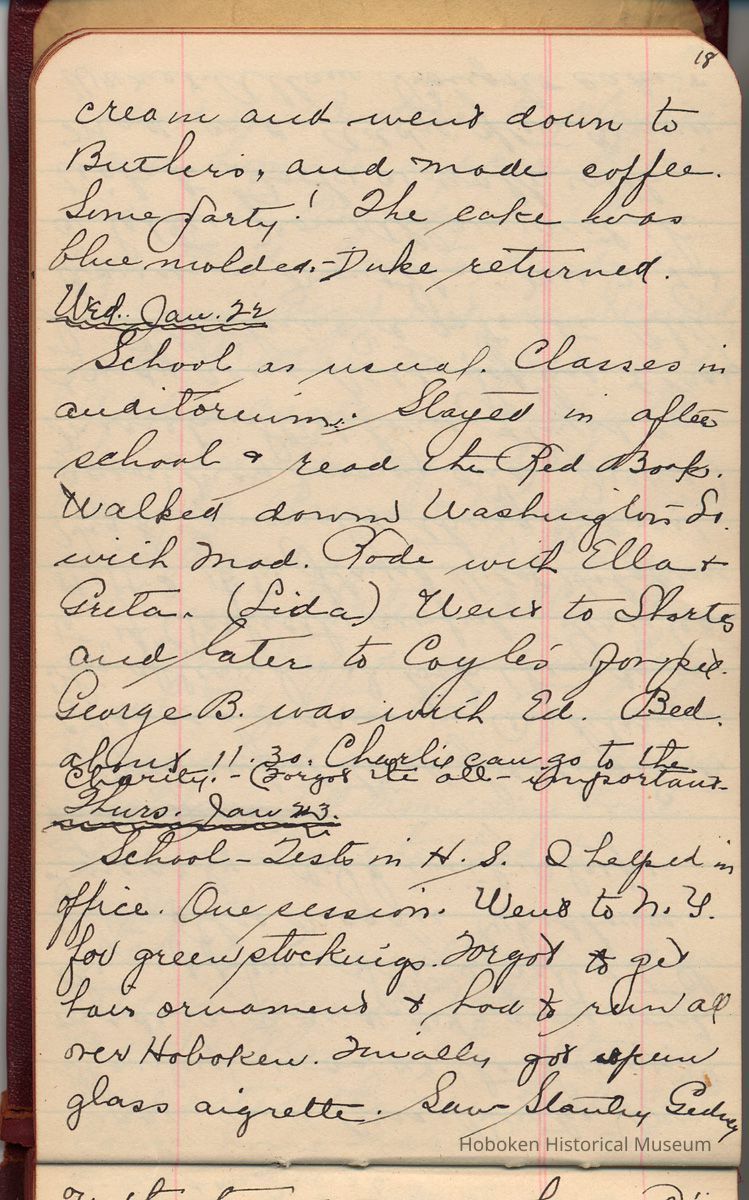 18
cream and went down to
Butlers, and made coffee.
Some party! The cake was
blue molded. - Duke returned.
Wed. Jan. 22
School as usual. Classes in
auditorium. Stayed in after
school & read the Red Book.
Walked down Washington St.
with Mad. Rode with Ella &
Greta. (Lida) Went to Shorts
and later to Coyle's for
George B. was with Ed. Bed.
about 11.30. Charlie can go to the
Charity! - (Forgot the all - important
Thurs. Jan 23.
School - Tests in H. S. I helped in
office. One session. Went to N. Y.
for green stockings. Forgot to get
hair ornament & had to run all
over Hoboken. Finally got spun
glass aigrette. Saw Stanley Gedney
Hoboken Historical Museum